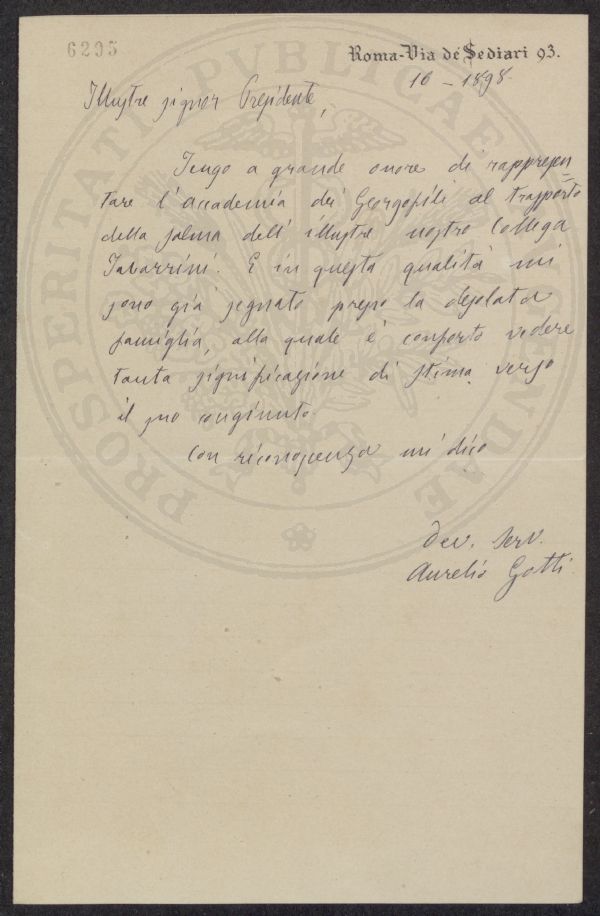 6295
Roma-Via dé Sediari 93.
16 - 1898
Illustre signor Presidente,
Tengo a grande onore di rappresen=
tare l'Accademia dei Georgofili al trasporto
della salma dell'illustre nostro Collega
Tabarrini. E in questa qualità mi
sono già segnato presso la desolata
famiglia, alla quale è conforto vedere
tanta significazione di stima verso
il suo congiunto.
Con riconoscenza mi dico
Dev. Serv.
Aurelio Gotti
PROSPERITATI PVBLICAE AVGENDAE